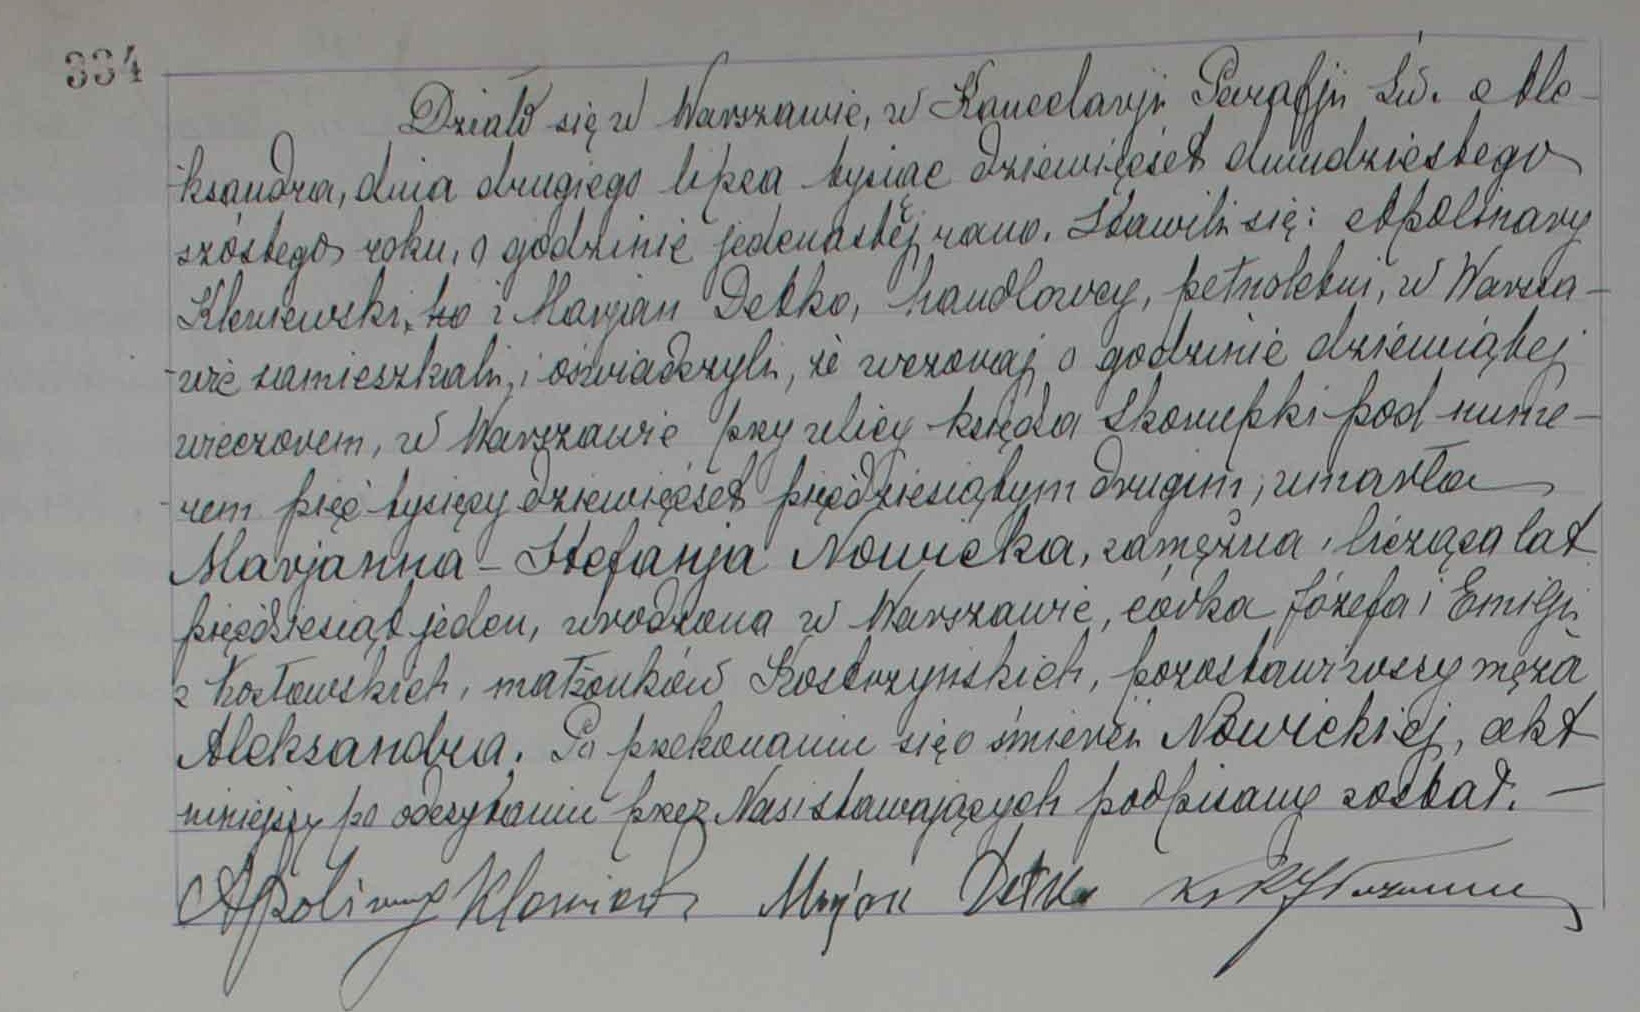 334
Działo się w Warszawie, w Kancelarji Parafji Św. Ale-
ksandra, dnia drugiego lipca tysiąc dziewięćset dwudziestego
szóstego roku, o godzinie jedenastej rano. Stawili się: Apolinary
Kleniewski, i Marjan Detko, handlowcy, pełnoletni, w Warsza-
wie zamieszkali, i oświadczyli, że wczoraj o godzinie dziewiątej
wieczorem, w Warszawie przy ulicy księdza Skorupki pod nume-
rem pięć tysięcy dziewięćset pięćdziesiątym drugim, umarła
Marjanna - Stefanja Nowicka, zamężna, licząca lat
pięćdziesiąt jeden, urodzona w Warszawie, córka Józefa i Emilji
z Kozłowskich, małżonków Kostrzyńskich, pozostawiwszy męża
Aleksandra. Po przekonaniu się o śmierci Nowickiej, akt
niniejszy po odczytaniu przez Nas i stawających podpisany został. —
Apolinary Marjan Detko